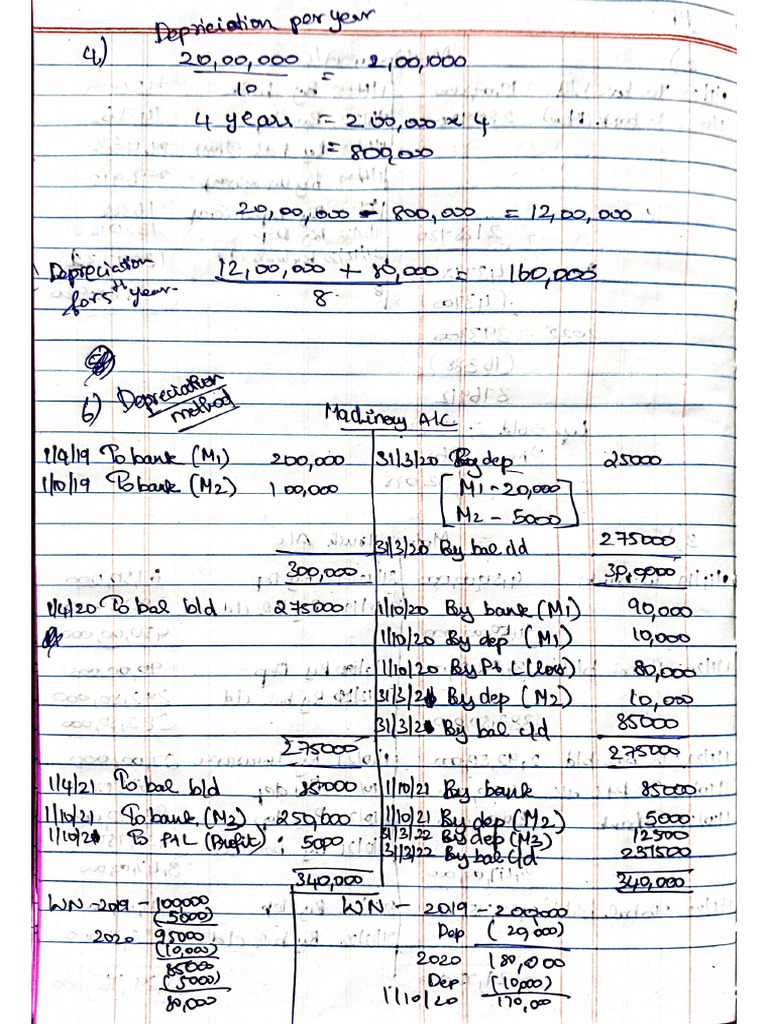 Depriciation per year
4) 20,00,000 / 10 = 2,00,000
4 years = 200,000 x 4
= 800,000
20,00,000 - 800,000 = 12,00,000
Depreciation for 5th year. 12,00,000 + 80,000 / 8 = 160,000
6) Depreciation method
Machinery A/C
1/4/19 To bank (M1) 200,000 31/3/20 By dep 25000
1/10/19 To bank (M2) 100,000 [M1 - 20,000
M2 - 5000]
31/3/20 By bal c/d 275000
300,000 30,0000
1/4/20 To bal b/d 275000 1/10/20 By bank (M1) 90,000
1/10/20 By dep (M1) 10,000
1/10/20 By P+L (loss) 80,000
31/3/21 By dep (M2) 10,000
31/3/21 By bal c/d 85000
275000 275000
1/4/21 To bal b/d 85000 1/10/21 By bank 85000
1/10/21 To bank (M3) 250,000 1/10/21 By dep (M2) 5000
1/10/21 To P+L (Profit) : 5000 31/3/22 By dep (M3) 12500
31/3/22 By bal c/d 237500
340,000 340,000
WN - 2019 - 100000 WN - 2019 - 200000
(5000) Dep (20,000)
2020 95000 2020 180,000
(10,000) Dep (10,000)
85000 1/10/20 170,00
(5000)
80,000